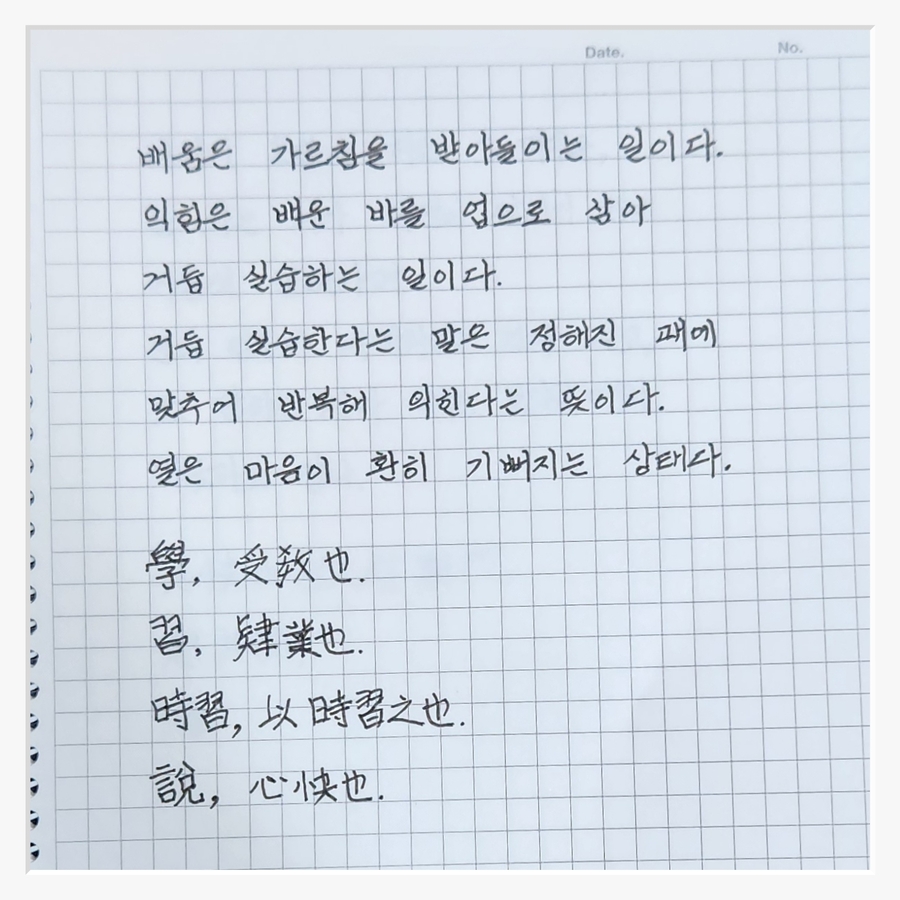 Date. No.
배움은 가르침을 받아들이는 일이다.
익힘은 배운 바를 업으로 삼아
거듭 실습하는 일이다.
거듭 실습한다는 말은 정해진 때에
맞추어 반복해 익힌다는 뜻이다.
열은 마음이 환히 기뻐지는 상태다.
學, 受敎也.
習, 肄業也.
時習, 以時習之也.
說, 心快也.